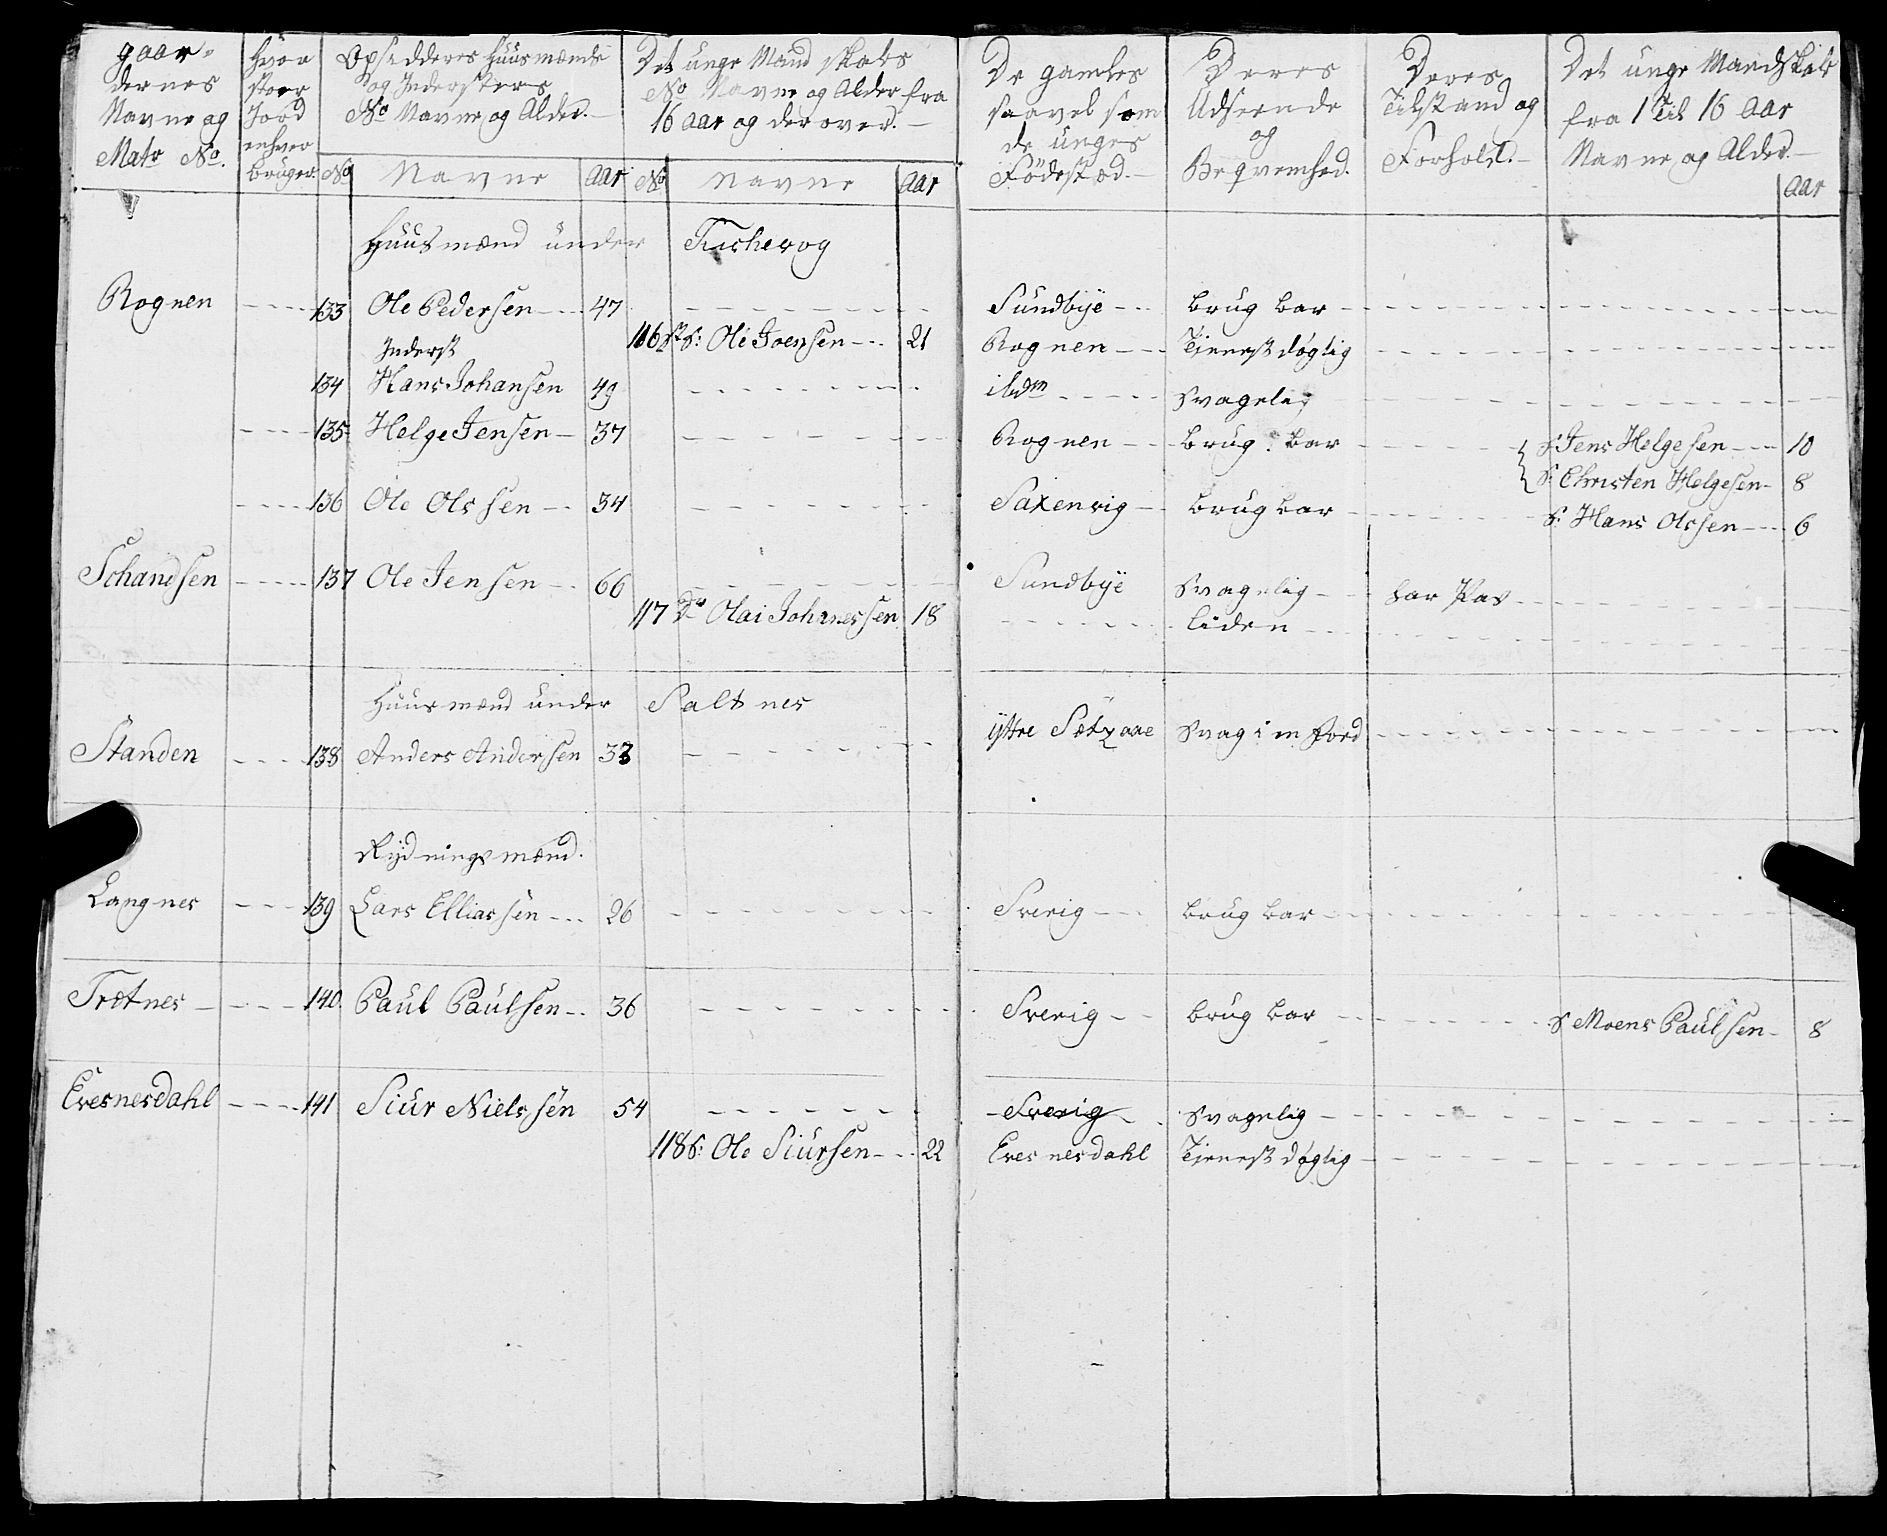 gaar-
dernes
Navne og
Matr No.
Hvor
stor
Jord
enhver
bruger.
Opsidderes Huusmænds
og Indersters
No Navne og Alder.
No Navne Aar
Det unge Mandskabs
No Navne og Alder fra
16 Aar og derover.
No Navne Aar
De gamles
saavel som
de unges
Födestæd.
Deres
Udseende
og
Beqvemhed.
Deres
Tilstand og
Forhold.
Det unge Mandskab
fra 1 til 16 Aar
Navne og Alder
Aar
Huusmænd under
Rognen 133 Ole Pedersen 47 Sundbÿe brugbar
Inderst 116 St S: Ole Joensen 21 Rognen Tienestdøgtig
134 Hans Johansen 49 ibdm svagelig
135 Helge Jensen 37 Rognen brugbar S. Jens Helgesen 10
S. Christen Helgesen 8
136 Ole Olssen 34 Saxenvig brugbar
S: Hans Olssen 6
Schandsen 137 Ole Jensen 66 Sundbÿe svagelig har Pas
117 Olai Johanessen 18 liden
Huusmænd under Saltnes
Standen 138 Anders Andersen 33 ÿttre svag i en
Rÿdningsmænd.
Langnes 139 Lars Elliassen 26 Sverig brugbar
Trætnes 140 Paul Paulsen 36 Sverig brugbar S Moens Paulsen 8
Evenesdahl 141 Siur Nielssen 54 Sverig svagelig
118 S: Ole Siursen 22 Evenesdahl Tienestdøgtig